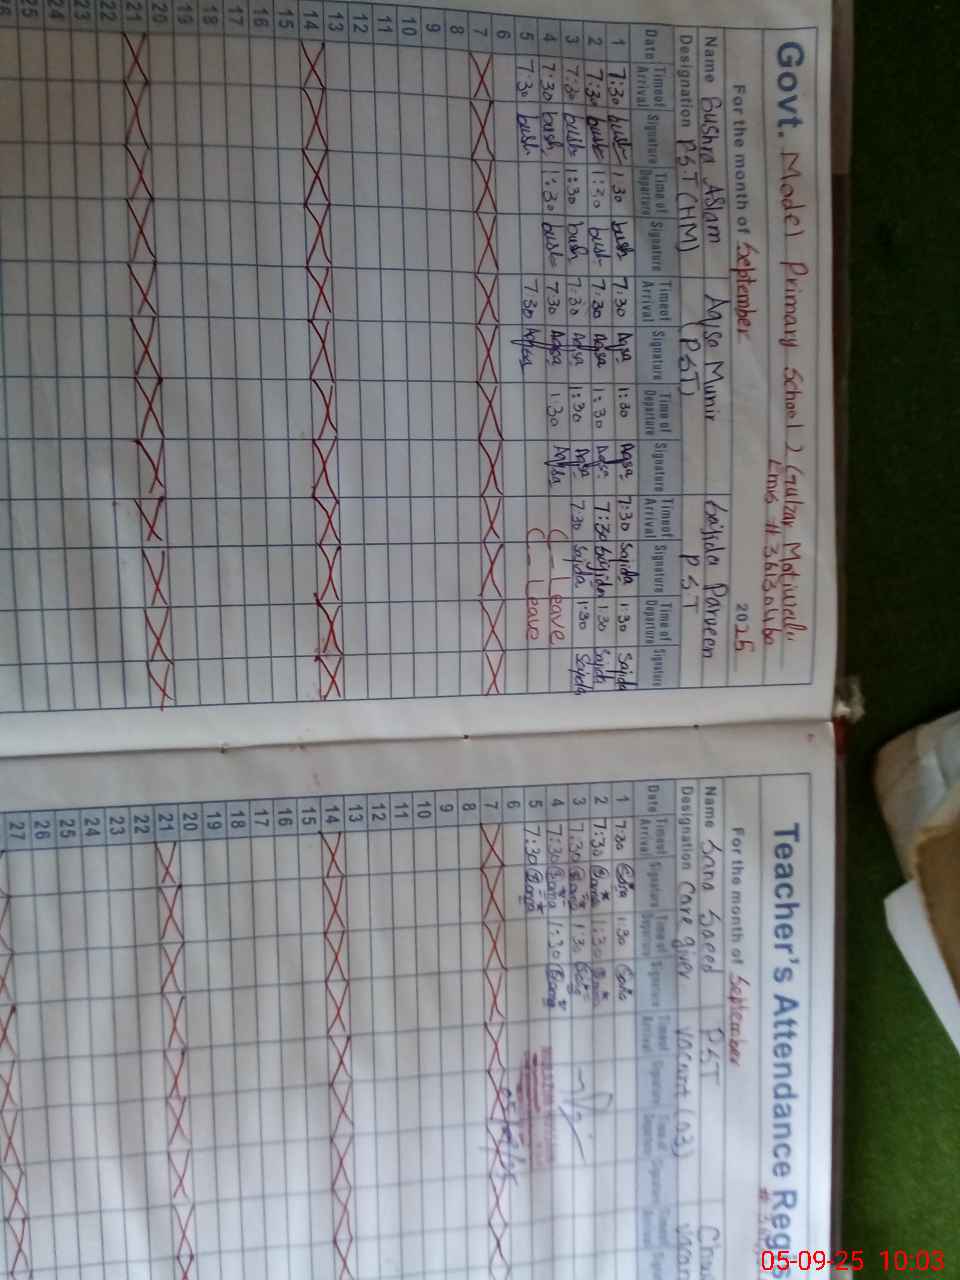 Govt. Model Primary School 2 Gulzar Motiwala
Emis # 36130460
For the month of September 2025
Name Bushra Aslam Aqsa Munir Sajida Parveen
Designation PST (HM) (PST) PST
Date Time of Arrival Signature Time of Departure Signature Time of Arrival Signature Time of Departure Signature Time of Arrival Signature Time of Departure Signature
1 7:30 bush 1:30 bush 7:30 Aqsa 1:30 Aqsa 7:30 Sajida 1:30 Sajida
2 7:30 bush 1:30 bush 7:30 Aqsa 1:30 Aqsa 7:30 Sajida 1:30 Sajida
3 7:30 bush 1:30 bush 7:30 Aqsa 1:30 Aqsa 7:30 Sajida 1:30 Sajida
4 7:30 bush 1:30 bush 7:30 Aqsa 1:30 Aqsa Leave
5 7:30 bush 7:30 Aqsa Leave
6
7
8
9
10
11
12
13
14
15
16
17
18
19
20
21
22
23
24
25
Teacher's Attendance Regis
For the month of September
Name Sana Saeed PST
Designation Care giver vacant (03)
Date Time of Arrival Signature Time of Departure Signature Time of Arrival Signature Time of Departure Signature Time of Arrival
1 7:30 Sana 1:30 Sana
2 7:30 Sana 1:30 Sana
3 7:30 Sana 1:30 Sana
4 7:30 Sana 1:30 Sana
5 7:30 Sana
6
7
8
9
10
11
12
13
14
15
16
17
18
19
20
21
22
23
24
25
26
27
05-09-25 10:03